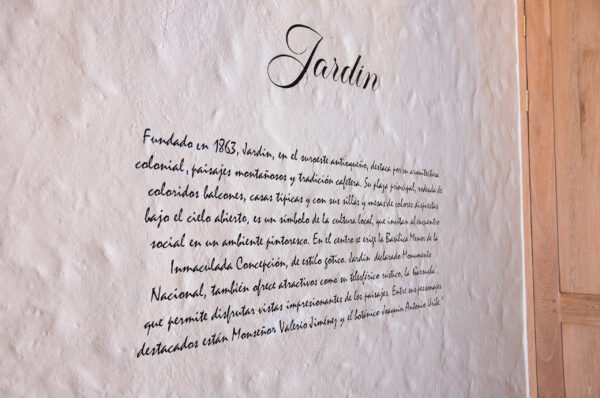 Jardín
Fundado en 1863, Jardín, en el suroeste antioqueño, destaca por su arquitectura
colonial, paisajes montañosos y tradición cafetera. Su plaza principal, rodeada de
coloridos balcones, casas típicas y con sus sillas y mesas de colores dispuestas
bajo el cielo abierto, es un símbolo de la cultura local, que invitan al encuentro
social en un ambiente pintoresco. En el centro se erige la Basílica Menor de la
Inmaculada Concepción, de estilo gótico. Jardín declarado Monumento
Nacional, también ofrece atractivos como su teleférico rústico, la
que permite disfrutar vistas impresionantes de los paisajes. Entre sus personajes
destacados están Monseñor Valerio Jiménez y el botánico Joaquín Antonio Uribe."